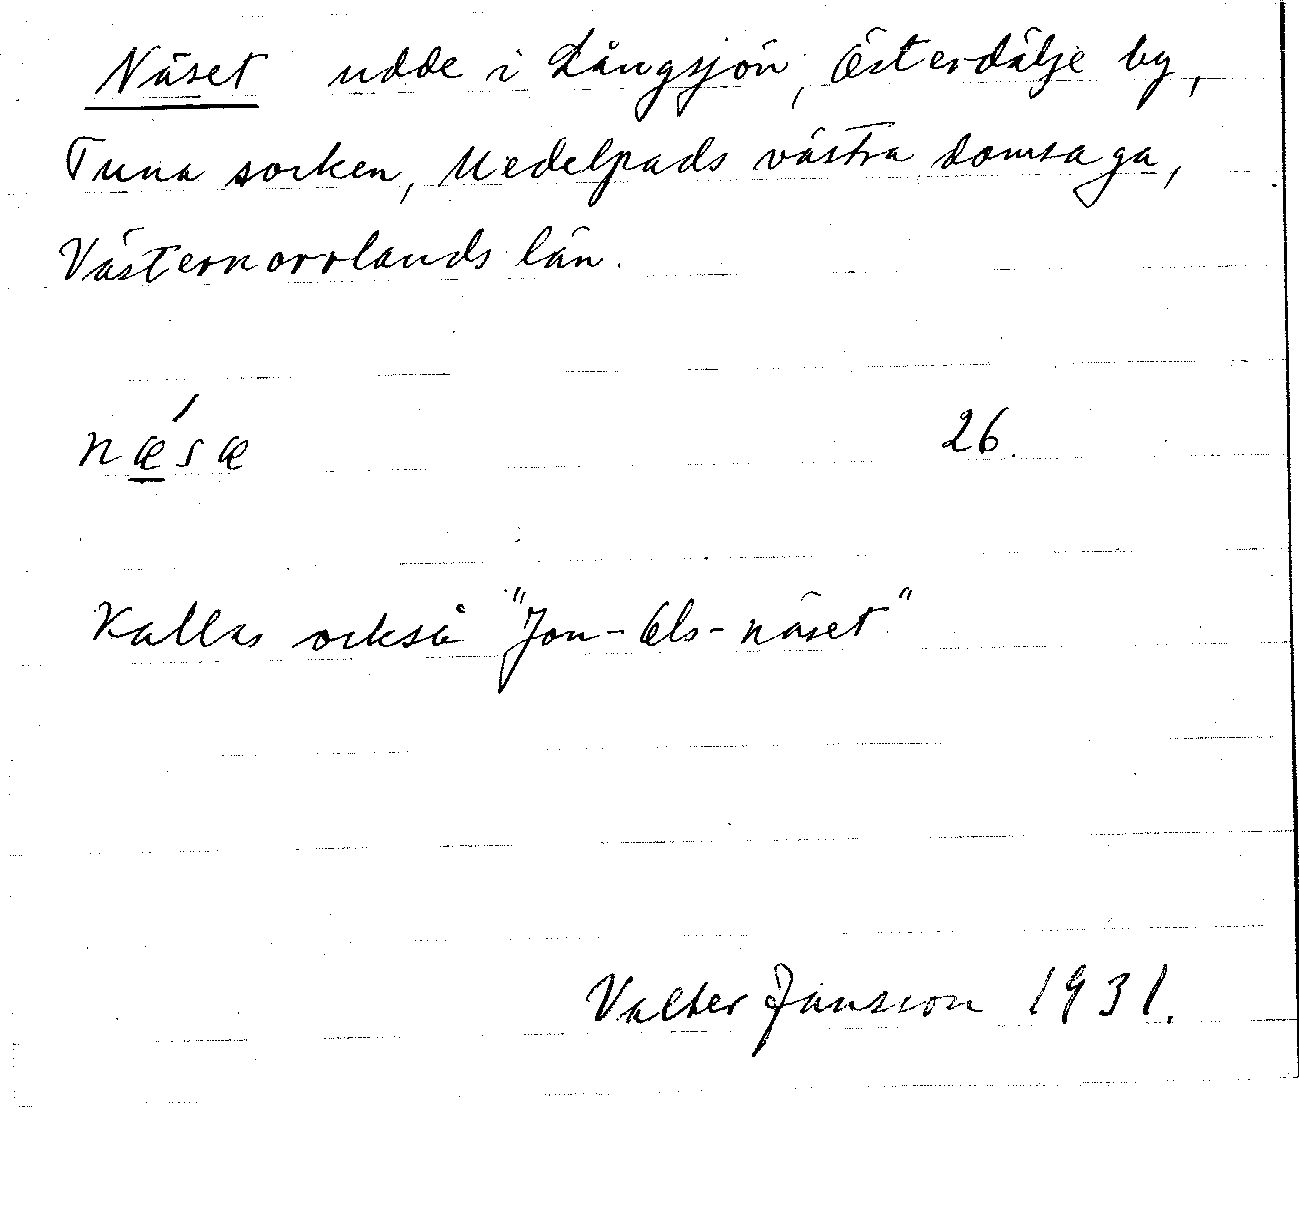 Näset udde i Långsjön, Österdälje by,
Tuna socken, Medelpads västra domsaga,
Västernorrlands län.
næ´sæ 26.
Kallas också "Jon-Ols-näset"
Valter Jansson 1931.